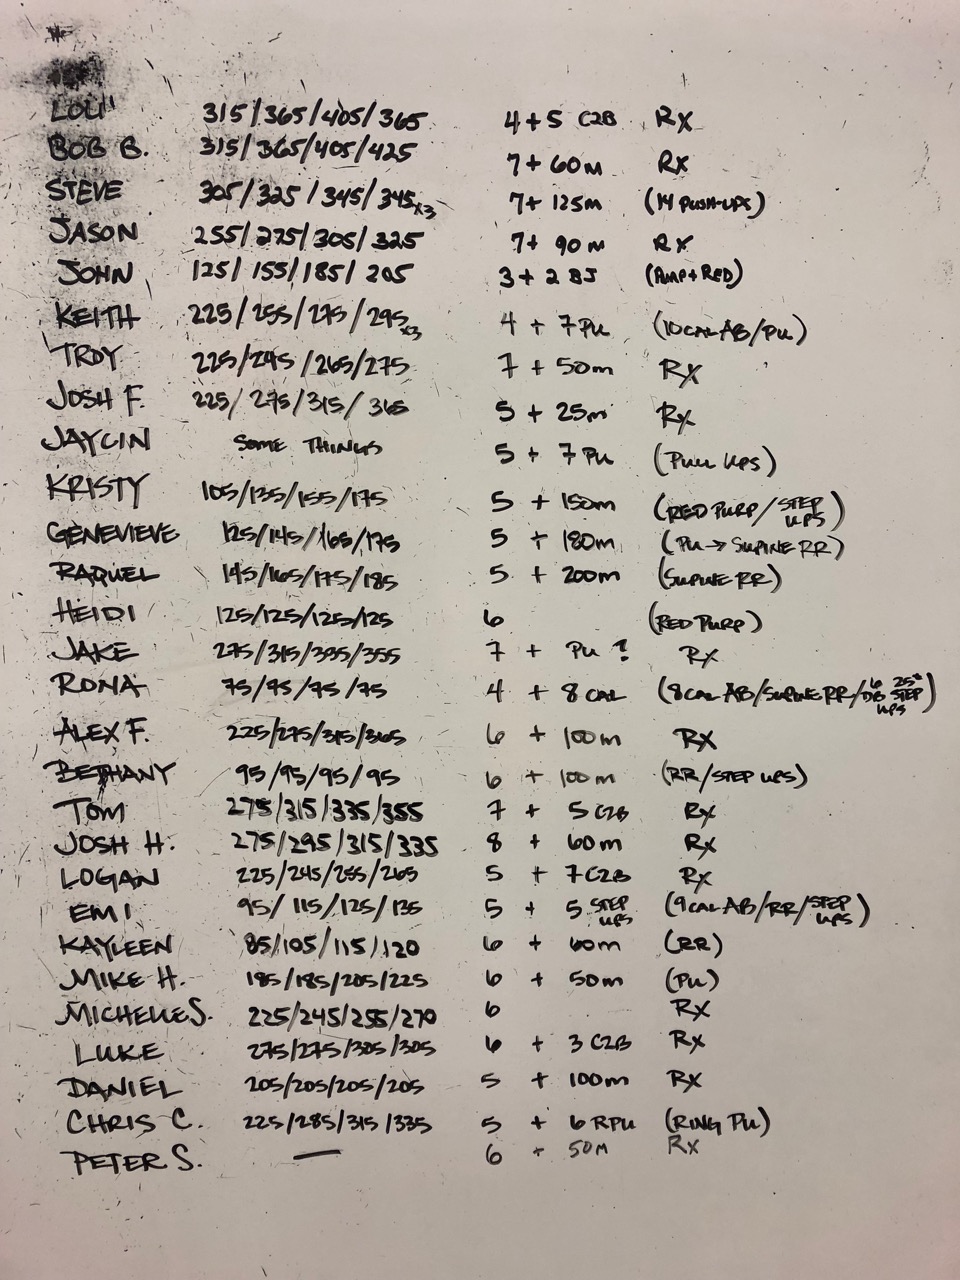 LOU 315/365/405/365 4+5 C2B RX
BOB B. 315/365/405/425 7+60m RX
STEVE 305/325/345/345x3 7+125m (14 PUSH-UPS)
JASON 255/275/305/325 7+90m RX
JOHN 125/155/185/205 3+2 BJ (PUMP+RED)
KEITH 225/255/275/295x3 4+7PU (10CAL AB/PU)
TROY 225/245/265/275 7+50m RX
JOSH F. 225/275/315/365 5+25m RX
JAYCIN SOME THINGS 5+7 PU (PULL UPS)
KRISTY 105/135/155/175 5+150m (RED PURP/STEP UPS)
GENEVIEVE 125/145/165/175 5+180m (PU→SUPINE RR)
RAQUEL 145/165/175/185 5+200m (SUPINE RR)
HEIDI 125/125/125/125 6 (RED PURP)
JAKE 275/315/335/355 7+PU? RX
RONA 75/95/95/75 4+8 CAL (8CAL AB/SUPINE RR/6 25# DB STEP UPS)
ALEX F. 225/275/315/365 6+100m RX
BETHANY 95/95/95/95 6+100m (RR/STEP UPS)
TOM 275/315/335/355 7+5 C2B RX
JOSH H. 275/295/315/335 8+60m RX
LOGAN 225/245/255/265 5+7C2B RX
EMI 95/115/125/135 5+5 STEP UPS (9CAL AB/RR/STEP UPS)
KAYLEEN 85/105/115/120 6+60m (RR)
MIKE H. 185/185/205/225 6+50m (PU)
MICHELLE S. 225/245/255/270 6 RX
LUKE 275/275/305/305 6+3 C2B RX
DANIEL 205/205/205/205 5+100m RX
CHRIS C. 225/285/315/335 5+6 RPU (RING PU)
PETER S. — 6+50M RX